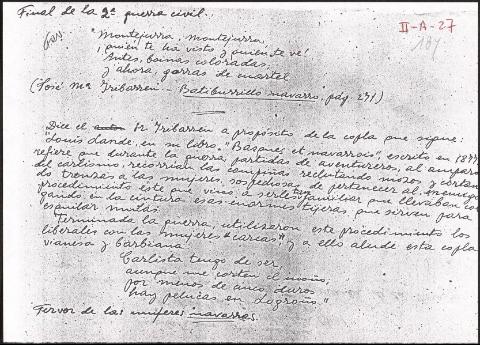 Final de la 2ª guerra civil.
II-A-27
"Montejurra, Montejurra,
¡quién te ha visto y quién te ve!
Antes, boinas coloradas,
y ahora, gorras de cuartel
(José Mª Iribarren - Batiburrillo navarro, pág. 241)
Dice el Sr Iribarren a propósito de la copla que sigue:
"Louis Lande, en su libro "Basques et navarrois", escrito en 1877,
refiere que durante la guerra, partidas de aventureros, al amparo
del carlismo, recorrían las campiñas reclutando mozos y cortan
do trenzas a las mujeres, sospechosas de pertenecer al enemigo
procedimiento este que vino a serles tan familiar que llevaban col
gando, en la cintura esas enormes tijeras, que sirven para
esquilar mulas.
Terminada la guerra, utilizaron este procedimiento los
liberales con las mujeres "carcas" y a ello alude esta copla
vianesa y barbiana:
Carlista tengo de ser
aunque me corten el moño;
por menos de cinco duros
hay pelucas en Logroño."
Fervor de las mujeres navarras.